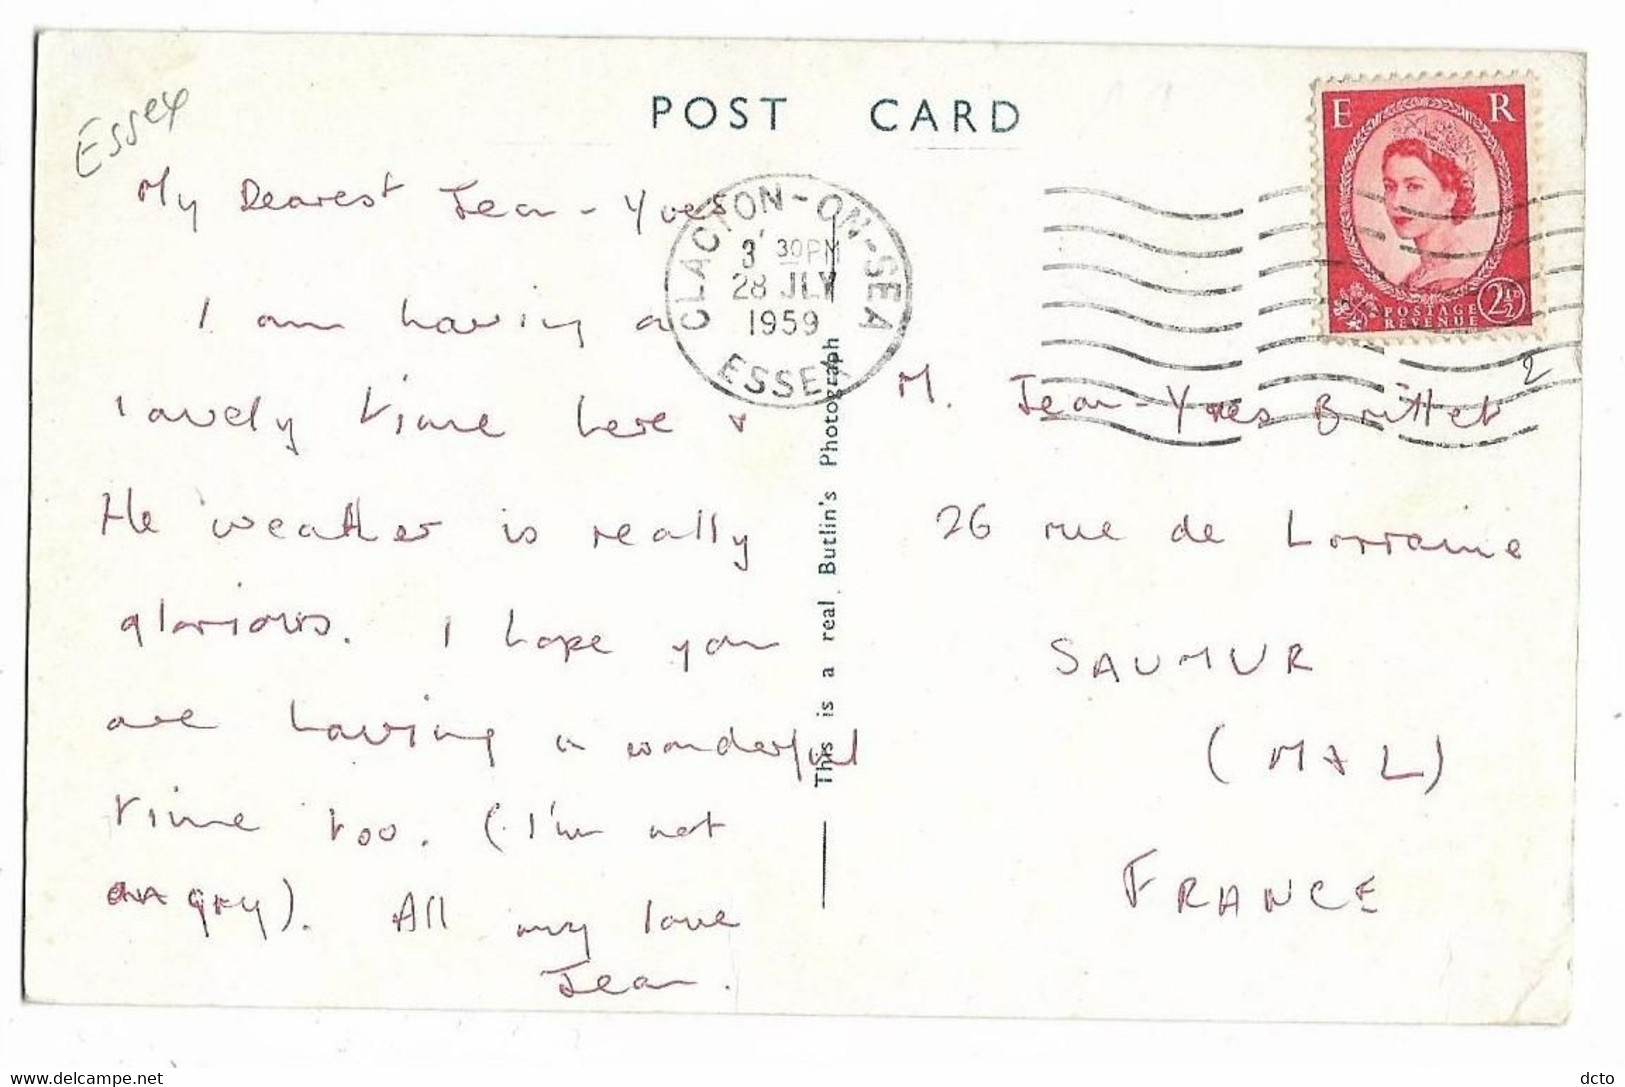 Essex
POST CARD
My Dearest Jean-Yves
I am having a
lovely time here +
the weather is really
glorious. I hope you
are having a wonderful
time too. (I'm not
angry). All my love
Jean.
CLACTON-ON-SEA
3 30PM
28 JLY
1959
ESSEX
This is a real Butlin's Photograph
E R
POSTAGE
REVENUE
2½D
2
M. Jean-Yves Brittet
26 rue de Lorraine
SAUMUR
(M & L)
FRANCE
www.delcampe.net
dcto